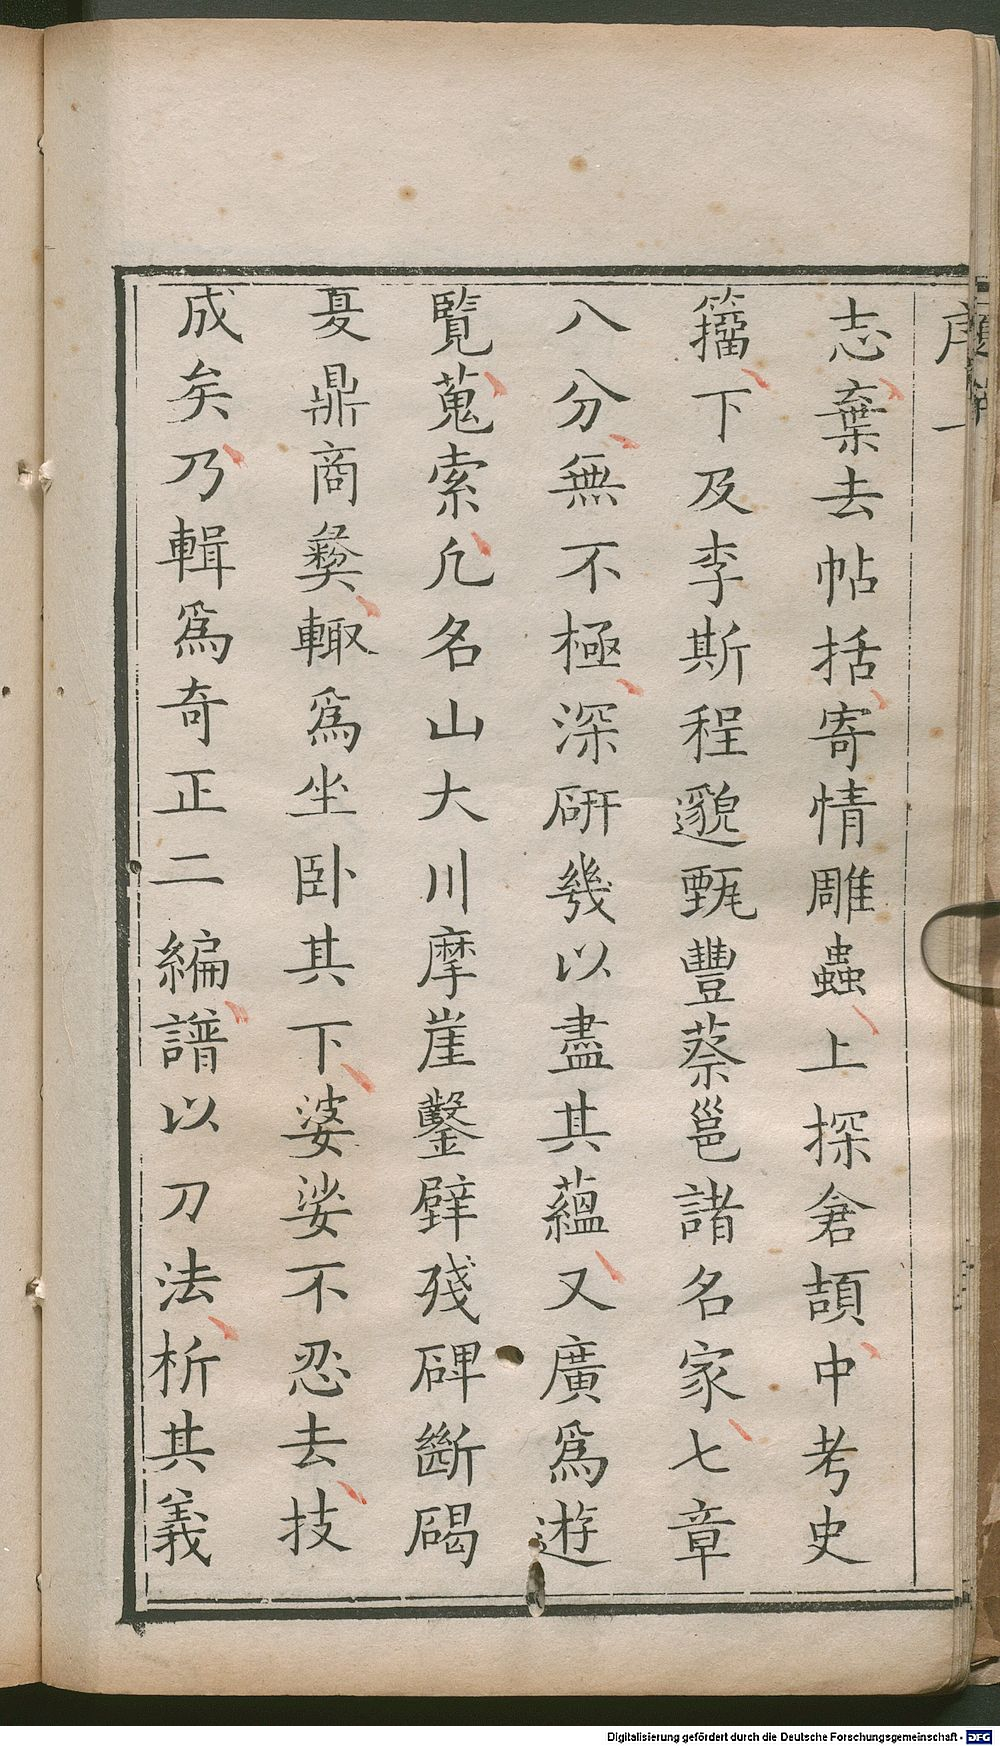 序
志棄去帖括寄情雕蟲上探倉頡中考史
籀下及李斯程邈甄豐蔡邕諸名家七章
八分無不極深硏幾以盡其蘊又廣爲遊
覽蒐索凢名山大川摩崖鑿壁殘碑斷碣
夏鼎商彜輙爲坐卧其下婆娑不忍去技
成矣乃輯爲奇正二編譜以刀法析其義
Digitalisierung gefördert durch die Deutsche Forschungsgemeinschaft - DFG